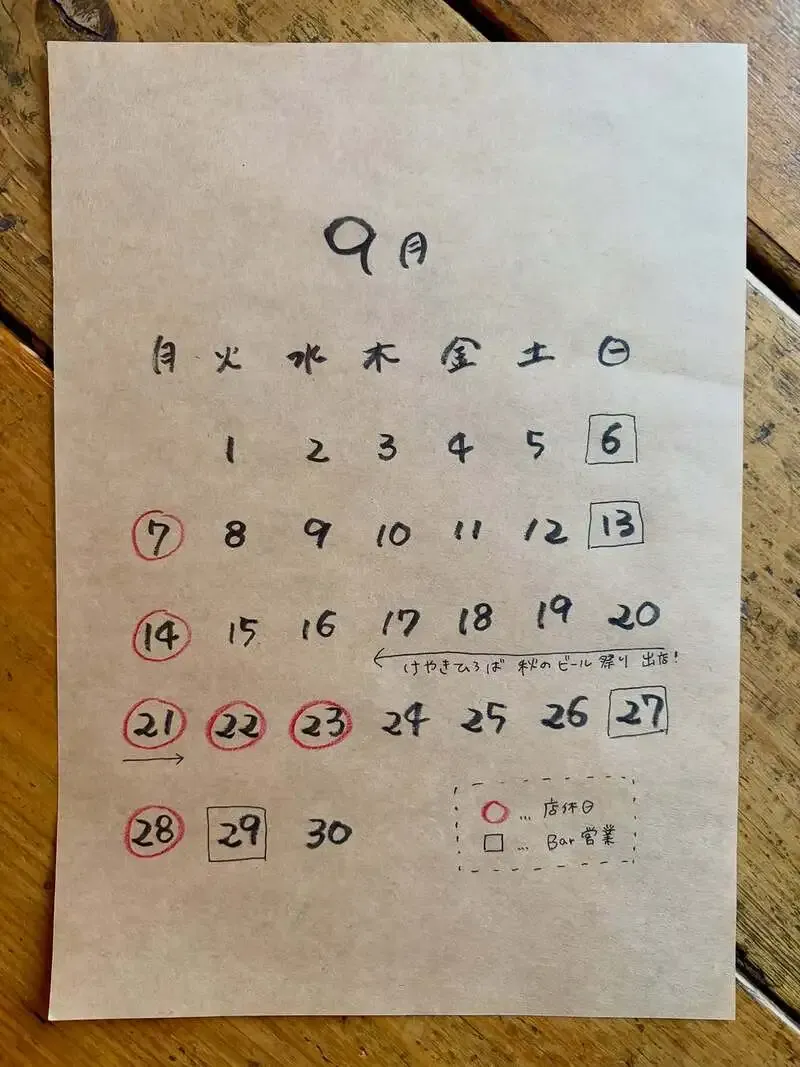 9月
月 火 水 木 金 土 日
1 2 3 4 5 6
7 8 9 10 11 12 13
14 15 16 17 18 19 20
けやきひろば 秋のビール祭り 出店!
21 22 23 24 25 26 27
28 29 30
○… 店休日
□… Bar営業